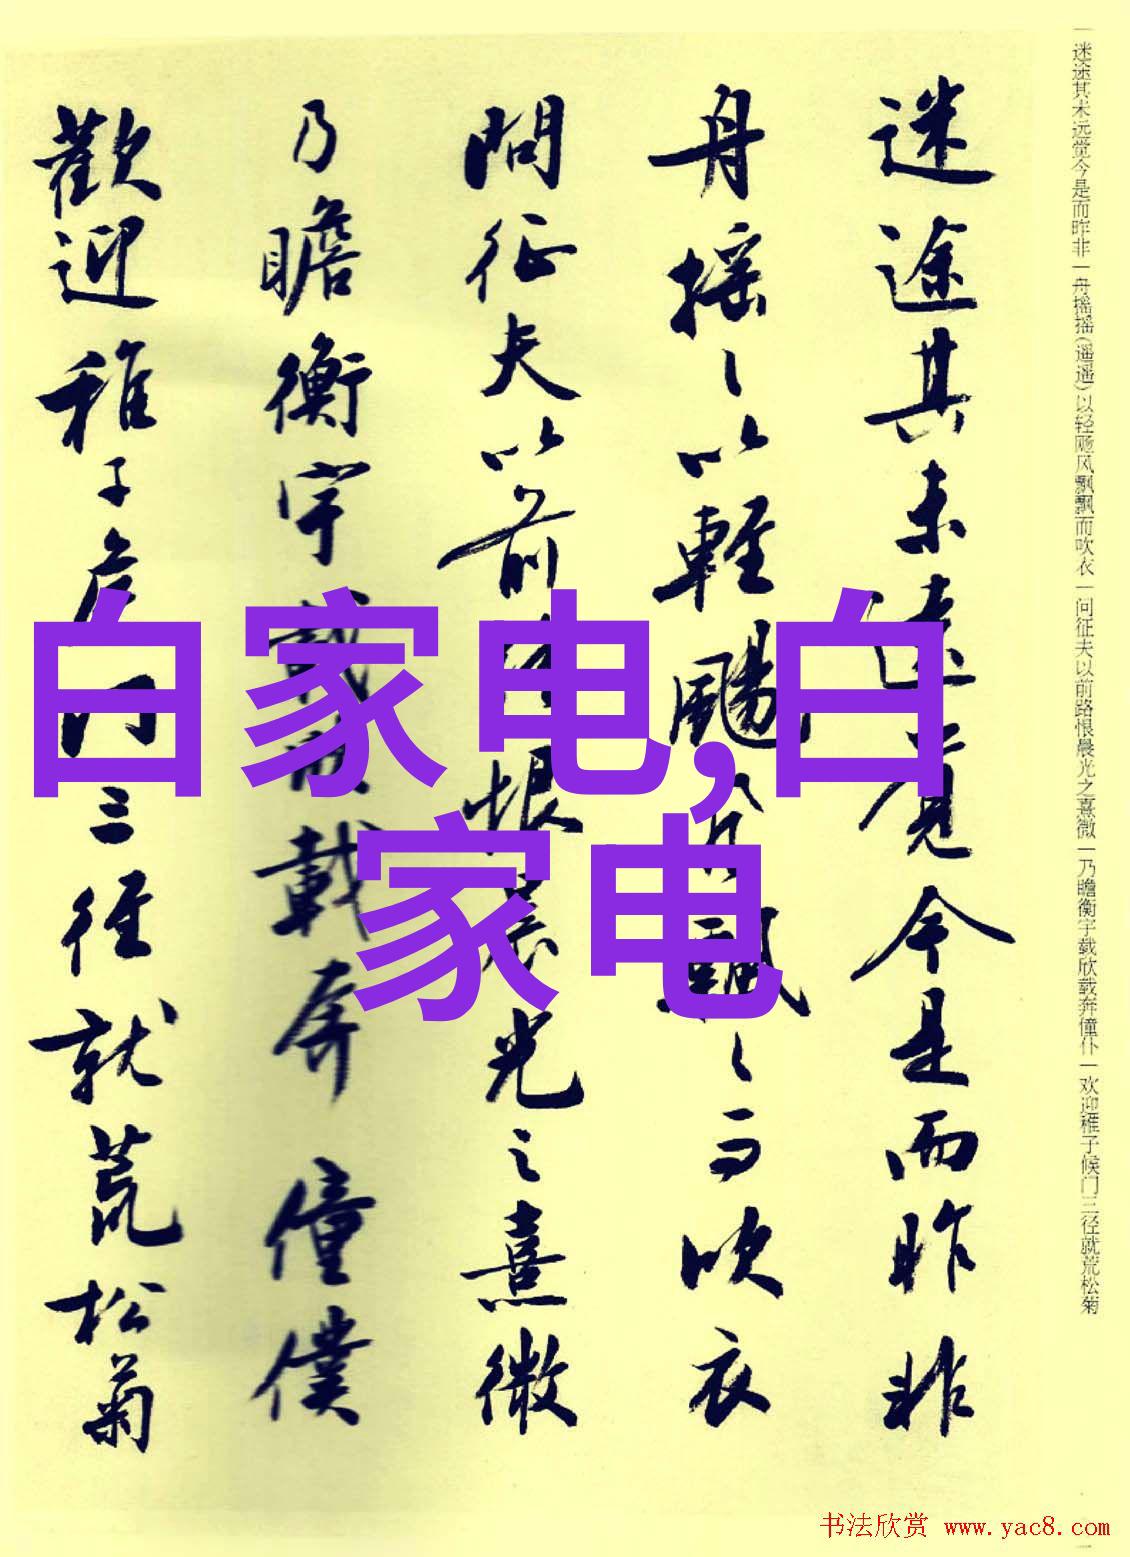 一迷途其未远觉今是而昨非一舟摇摇(遥遥)以轻飏风飘飘而吹衣一问征夫以前路恨晨光之熹微一乃瞻衡宇载欣载奔僮仆一欢迎稚子候门三径就荒松菊
迷途其未遠覺今是而昨非
舟摇〻以輕颺風飄〻而吹衣
問征夫以前路恨晨光之熹微
乃瞻衡宇載欣載奔僮僕
歡迎稚子候門三徑就荒松菊
白家电,白
家电
书法欣赏 www.yac8.com